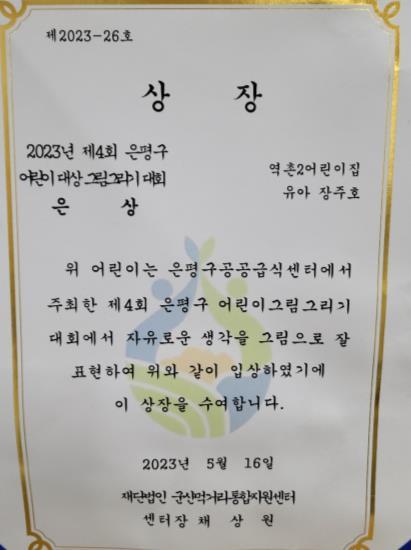 제2023-26호
상 장
2023년 제4회 은평구
어린이 대상 그림그리기 대회
은 상
역촌2어린이집
유아 장주호
위 어린이는 은평구공공급식센터에서
주최한 제4회 은평구 어린이그림그리기
대회에서 자유로운 생각을 그림으로 잘
표현하여 위와 같이 입상하였기에
이 상장을 수여합니다.
2023년 5월 16일
재단법인 군산먹거리통합지원센터
센터장 채 상 원